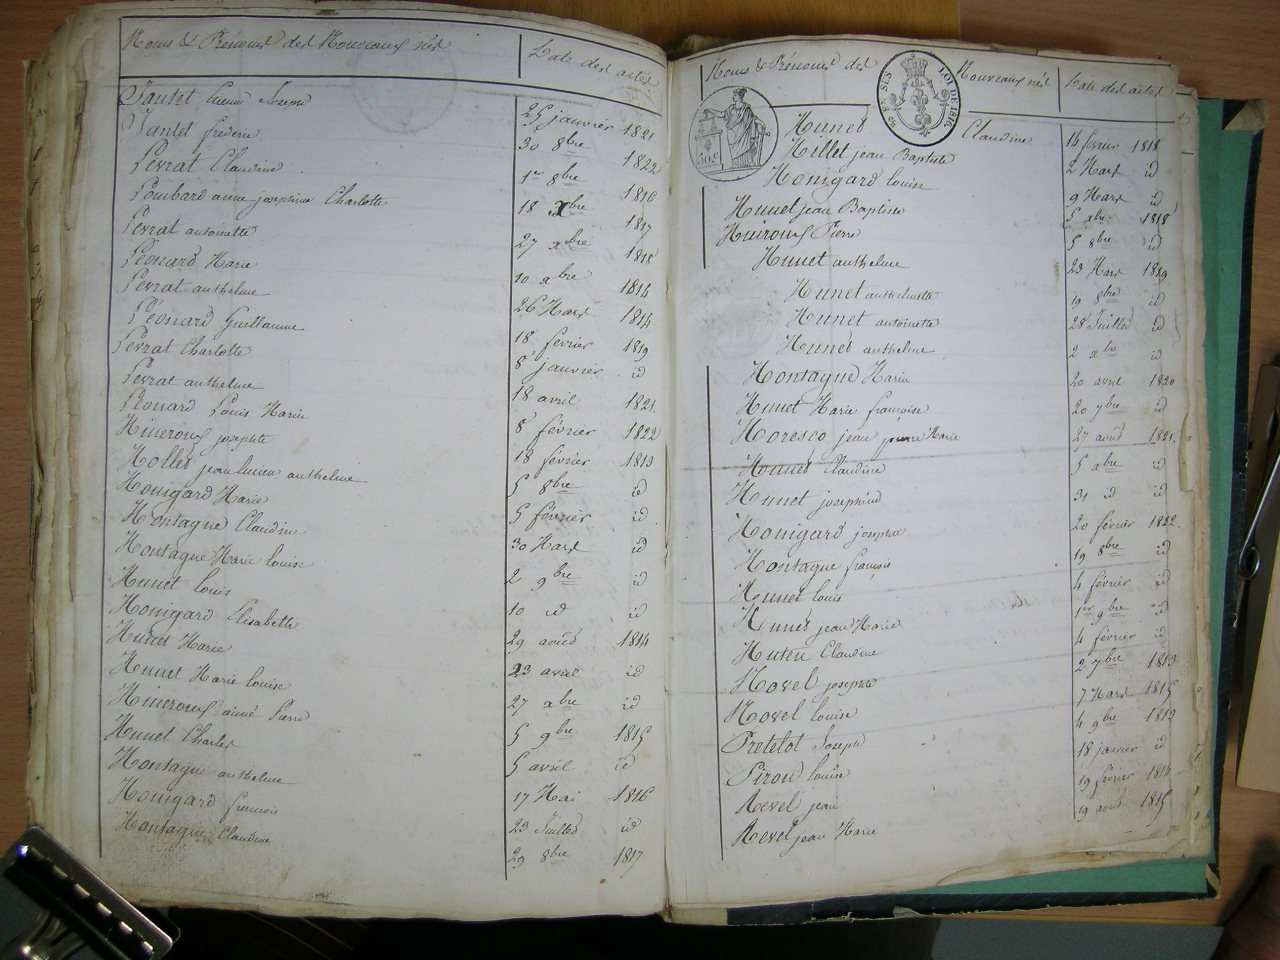 Noms & Prénoms des Nouveaux nés Date des actes
Jantet Lucien Joseph 25 janvier 1821
Jantet frédéric 30 8bre 1822
Levrat Claudine 1er 8bre 1816
Lombard anne josephine Charlotte 18 Xbre 1817
Levrat antoinette 27 xbre 1818
Léonard Marie 10 xbre 1814
Levrat anthelme 26 Mars 1814
Léonard Guillaume 18 fevrier 1819
Levrat Charlotte 8 janvier id
Levrat anthelme 18 avril 1821
Léonard Louis Marie 8 février 1822
josephte 18 février 1813
Mollet jean lucien anthelme 5 8bre id
Monigard Marie 5 février id
Montagne Claudine 30 Mars id
Montagne Marie louise 2 9bre id
Munet louis 10 id id
Monigard Elisabeth 29 août 1814
Munet Marie 23 avril id
Munet Marie louise 27 xbre id
aimé Pierre 5 9bre 1815
Munet Charles 5 avril id
Montagne anthelme 17 Mai 1816
Monigard françois 23 Juillet id
Montagne Claudine 29 8bre 1817
Noms & Prénoms des Nouveaux nés Date des actes
LOI DE 1816.
50 C
Munet Claudine 14 fevrier 1818
Millet jean Baptiste 2 Mars id
Monigard louise 9 Mars id
Munet jean Baptiste 5 xbre 1818
Pierre 5 8bre id
Munet anthelme 23 Mars 1819
Munet anthelmette 19 8bre id
Munet antoinette 28 Juillet id
Munet anthelme 2 xbre id
Montagne Marie 20 avril 1820
Munet Marie françoise 20 7bre id
Moresco jean pierre Marie 27 août 1821.
Munet Claudine 5 xbre id
Munet josephine 31 id id
Monigard josephte 20 février 1822.
Montagne françois 19 8bre id
Munet louis 4 février id
Munet jean Marie 1er 9bre id
Claudine 4 février id
Novel josephte 2 7bre 1813
Novel louise 7 Mars 1815
Pretetot Joseph 4 9bre 1813
Piron louise 18 janvier id
Revel jean 19 février 1814
Revel jean Marie 19 août 1815